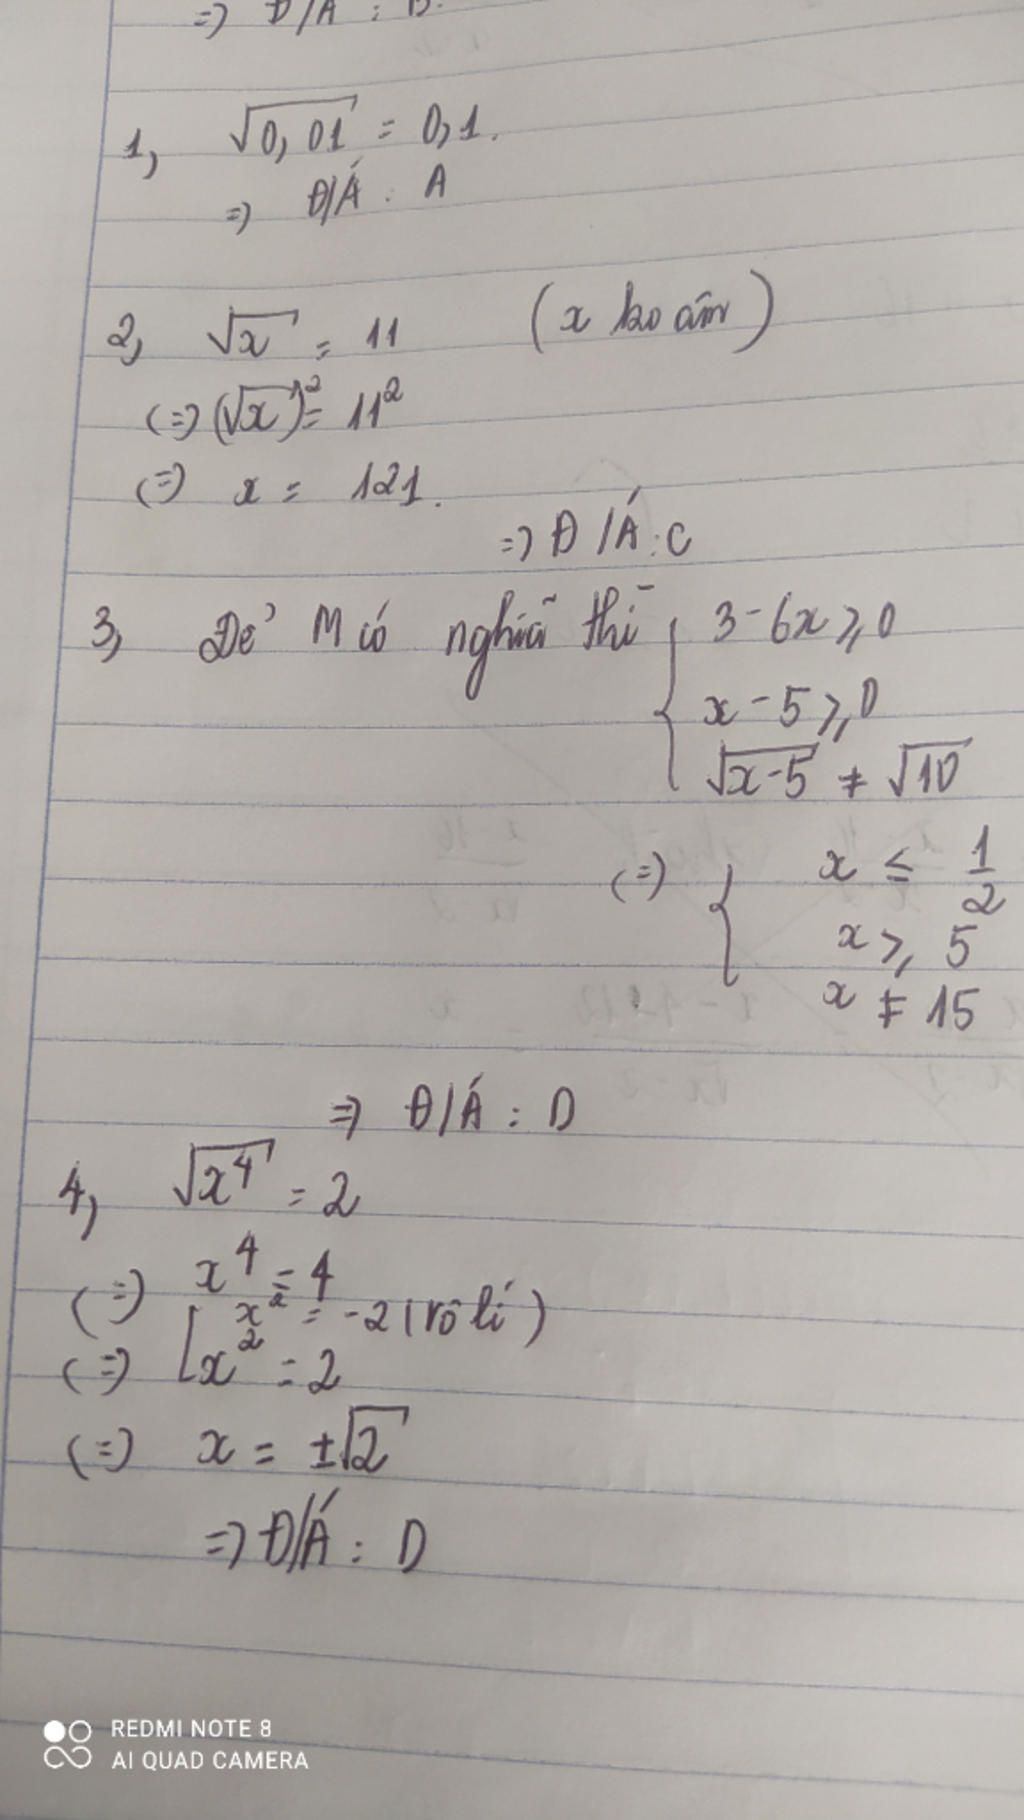 => Đ/A : B.
1, √0,01 = 0,1.
=> Đ/Á : A
2, √x = 11 (x ko âm)
(=) (√x)² = 11²
(=) x = 121.
=> Đ/Á : C
3, Để M có nghĩã thì { 3-6x ≥ 0
x-5 ≥ 0
√x-5 ≠ √10
(=) { x ≤ 1/2
x ≥ 5
x ≠ 15
=> Đ/Á : D
4, √x⁴ = 2
(=) x⁴ = 4
[ x² = -2 (vô lí)
(=) x² = 2
(=) x = ±√2
=> Đ/Á : D
REDMI NOTE 8
AI QUAD CAMERA